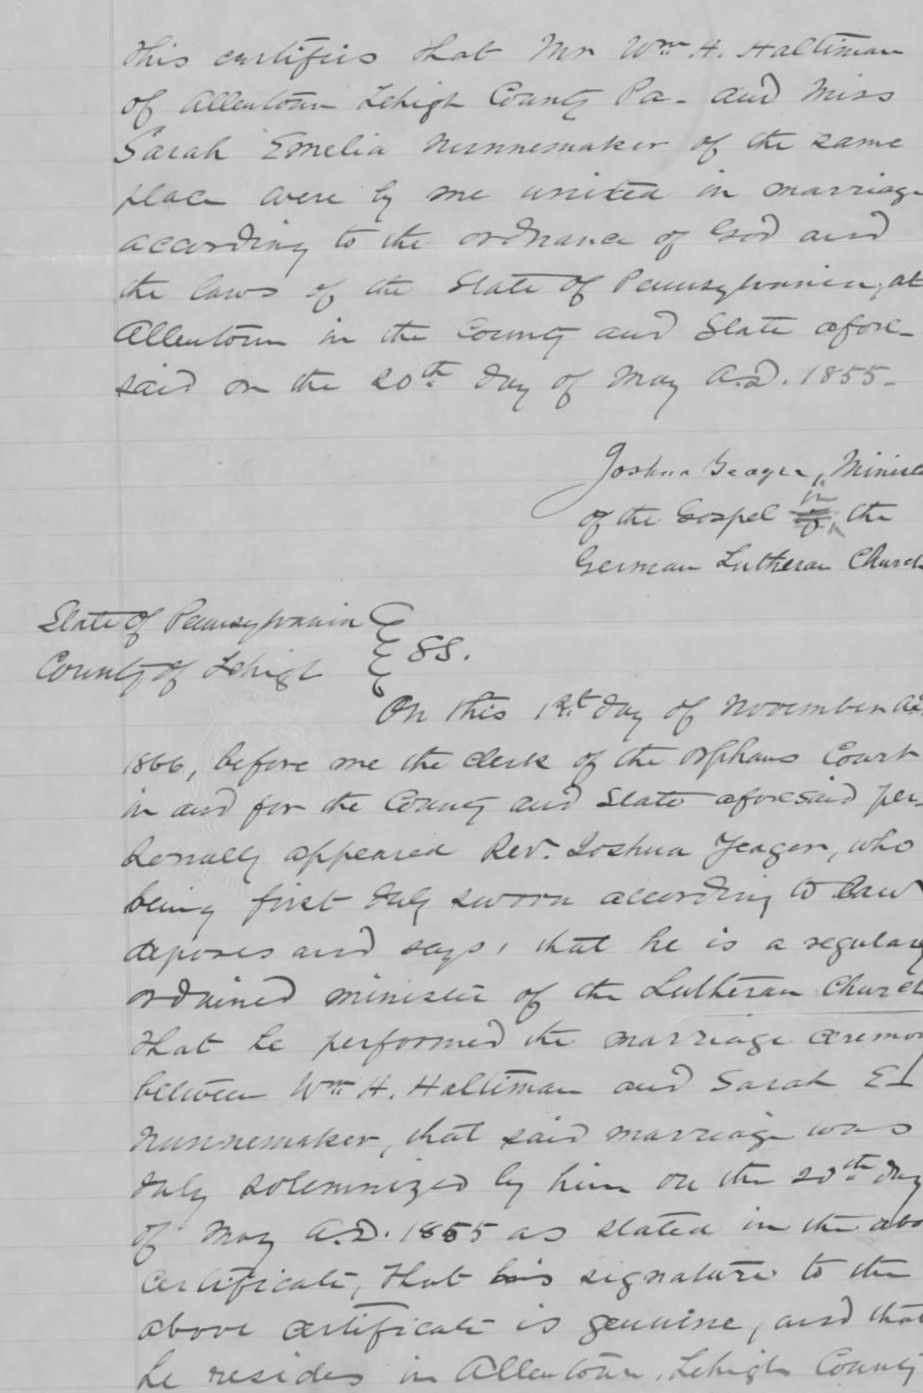 This certifies that Mr Wm H. Haltiman
of Allentown Lehigh County Pa - and Miss
Sarah Emelia Nunnemaker of the same
place were by me united in marriage
according to the ordnance of God and
the laws of the State of Pennsylvania, at
Allentown in the County and State afore-
said on the 20th day of May A.D. 1855-
Joshua Yeager, Minist
of the Gospel in the
German Lutheran Church
State of Pennsylvania
County of Lehigh } SS.
On this 1st day of November A.D.
1866, before me the clerk of the Orphans Court
in and for the County and State aforesaid per-
sonally appeared Rev. Joshua Yeager, who
being first duly sworn according to law
deposes and says, that he is a regularly
ordained minister of the Lutheran Church
that he performed the marriage ceremon
between Wm H. Haltiman and Sarah E
Nunnemaker, that said marriage was
duly solemnized by him on the 20th day
of May A.D. 1855 as stated in the abo
certificate, that his signature to the
above certificate is genuine, and that
he resides in Allentown, Lehigh County